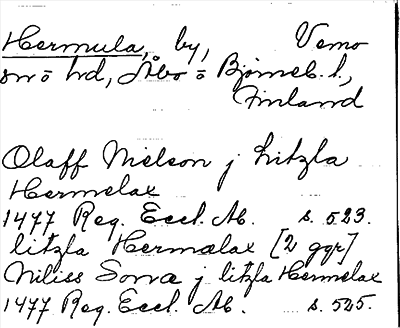 Hermula, by, Vemo
sn o hd, Åbo o Björneb. l.,
Finland
Olaff Nielson j Litzla
Hermelax
1477 Reg. Eccl. Ab. s. 523.
litzla Hermalax [2 ggr]
Niliss Sona j litzla Hermelax
1477 Reg. Eccl. Ab. s. 525.